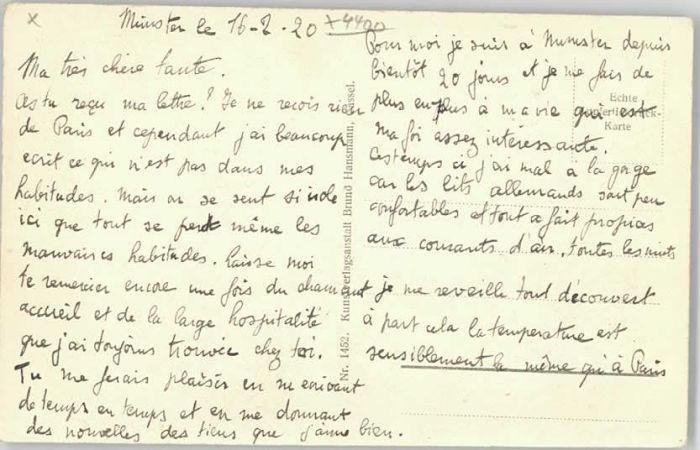 Münster le 16-2-20
x 4400
Ma très chère tante.
As tu reçu ma lettre? Je ne reçois rien
de Paris et cependant j'ai beaucoup
ecrit ce qui n'est pas dans mes
habitudes. Mais on se sent si isolé
ici que tout se perd même les
mauvaises habitudes. Laisse moi
te remercier encore une fois du charmant
accueil et de la large hospitalité
que j'ai toujours trouvée chez toi.
Tu me ferais plaisir en m'ecrivant
de temps en temps et en me donnant
des nouvelles des tiens que j'aime bien.
Pour moi je suis à Munster depuis
bientôt 20 jours et je me fais de
plus en plus à ma vie qui est
ma foi assez intéressante.
Ces temps ci j'ai mal à la gorge
car les lits allemands sont peu
confortables et tout a fait propices
aux courants d'air. toutes les nuits
je me reveille tout découvert
à part cela la temperature est
sensiblement la même qu'à Paris
Echte
Karte
Nr. 1452. Kunstverlagsanstalt Bruno Hansmann, Cassel.